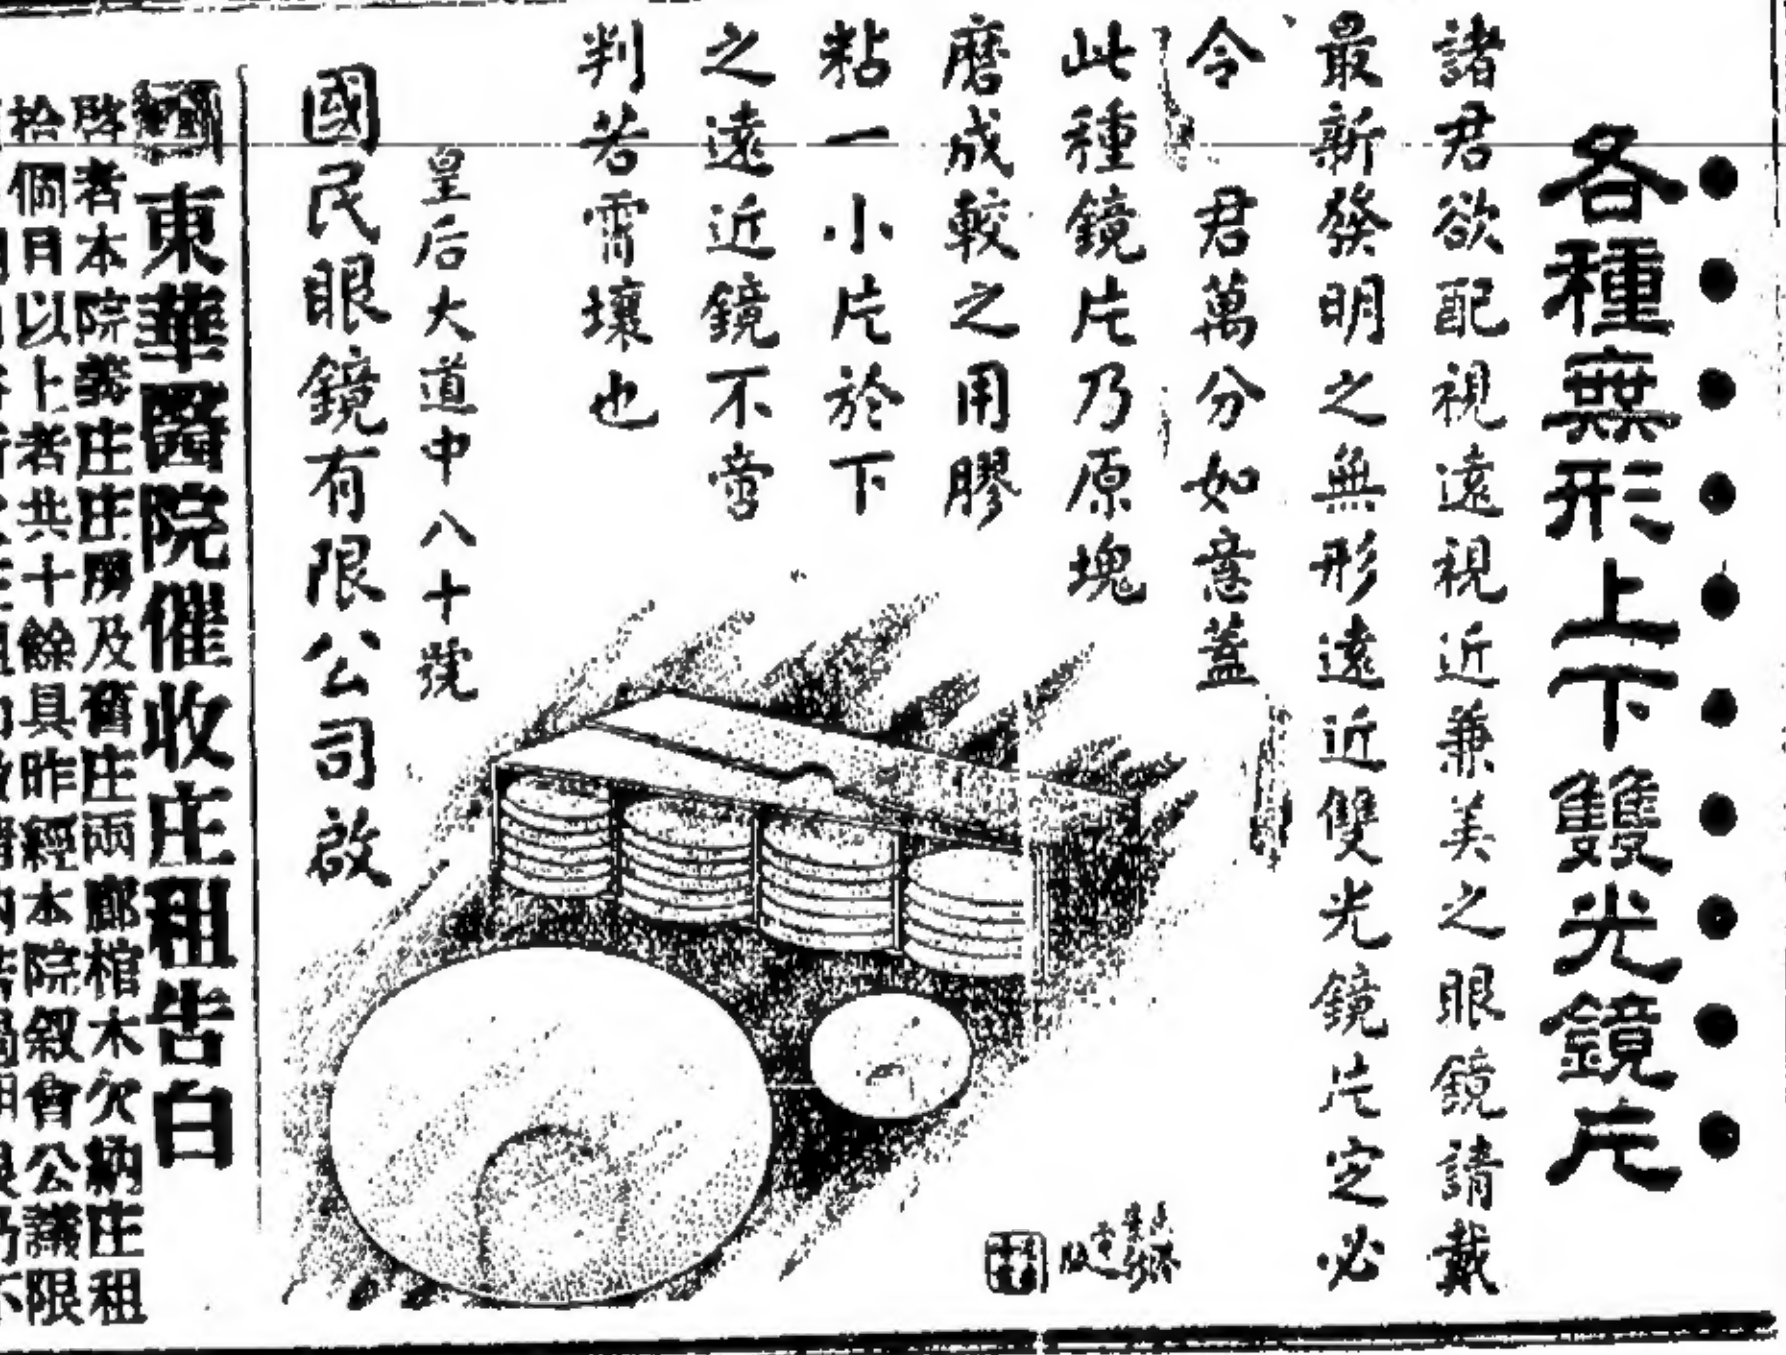 各種無形上下雙光鏡片
諸君欲配視遠視近兼美之眼鏡請戴
最新發明之無形遠近雙光鏡片定必
令 君萬分如意蓋
此種鏡片乃原塊
磨成較之用膠
粘一小片於下
之遠近鏡不啻
判若霄壤也
皇后大道中八十號
國民眼鏡有限公司啟
東華醫院催收庄租告白
啓者本院義庄庄房及舊庄兩廊棺木欠納庄租
拾個月以上者共十餘具昨經本院叙會公議限